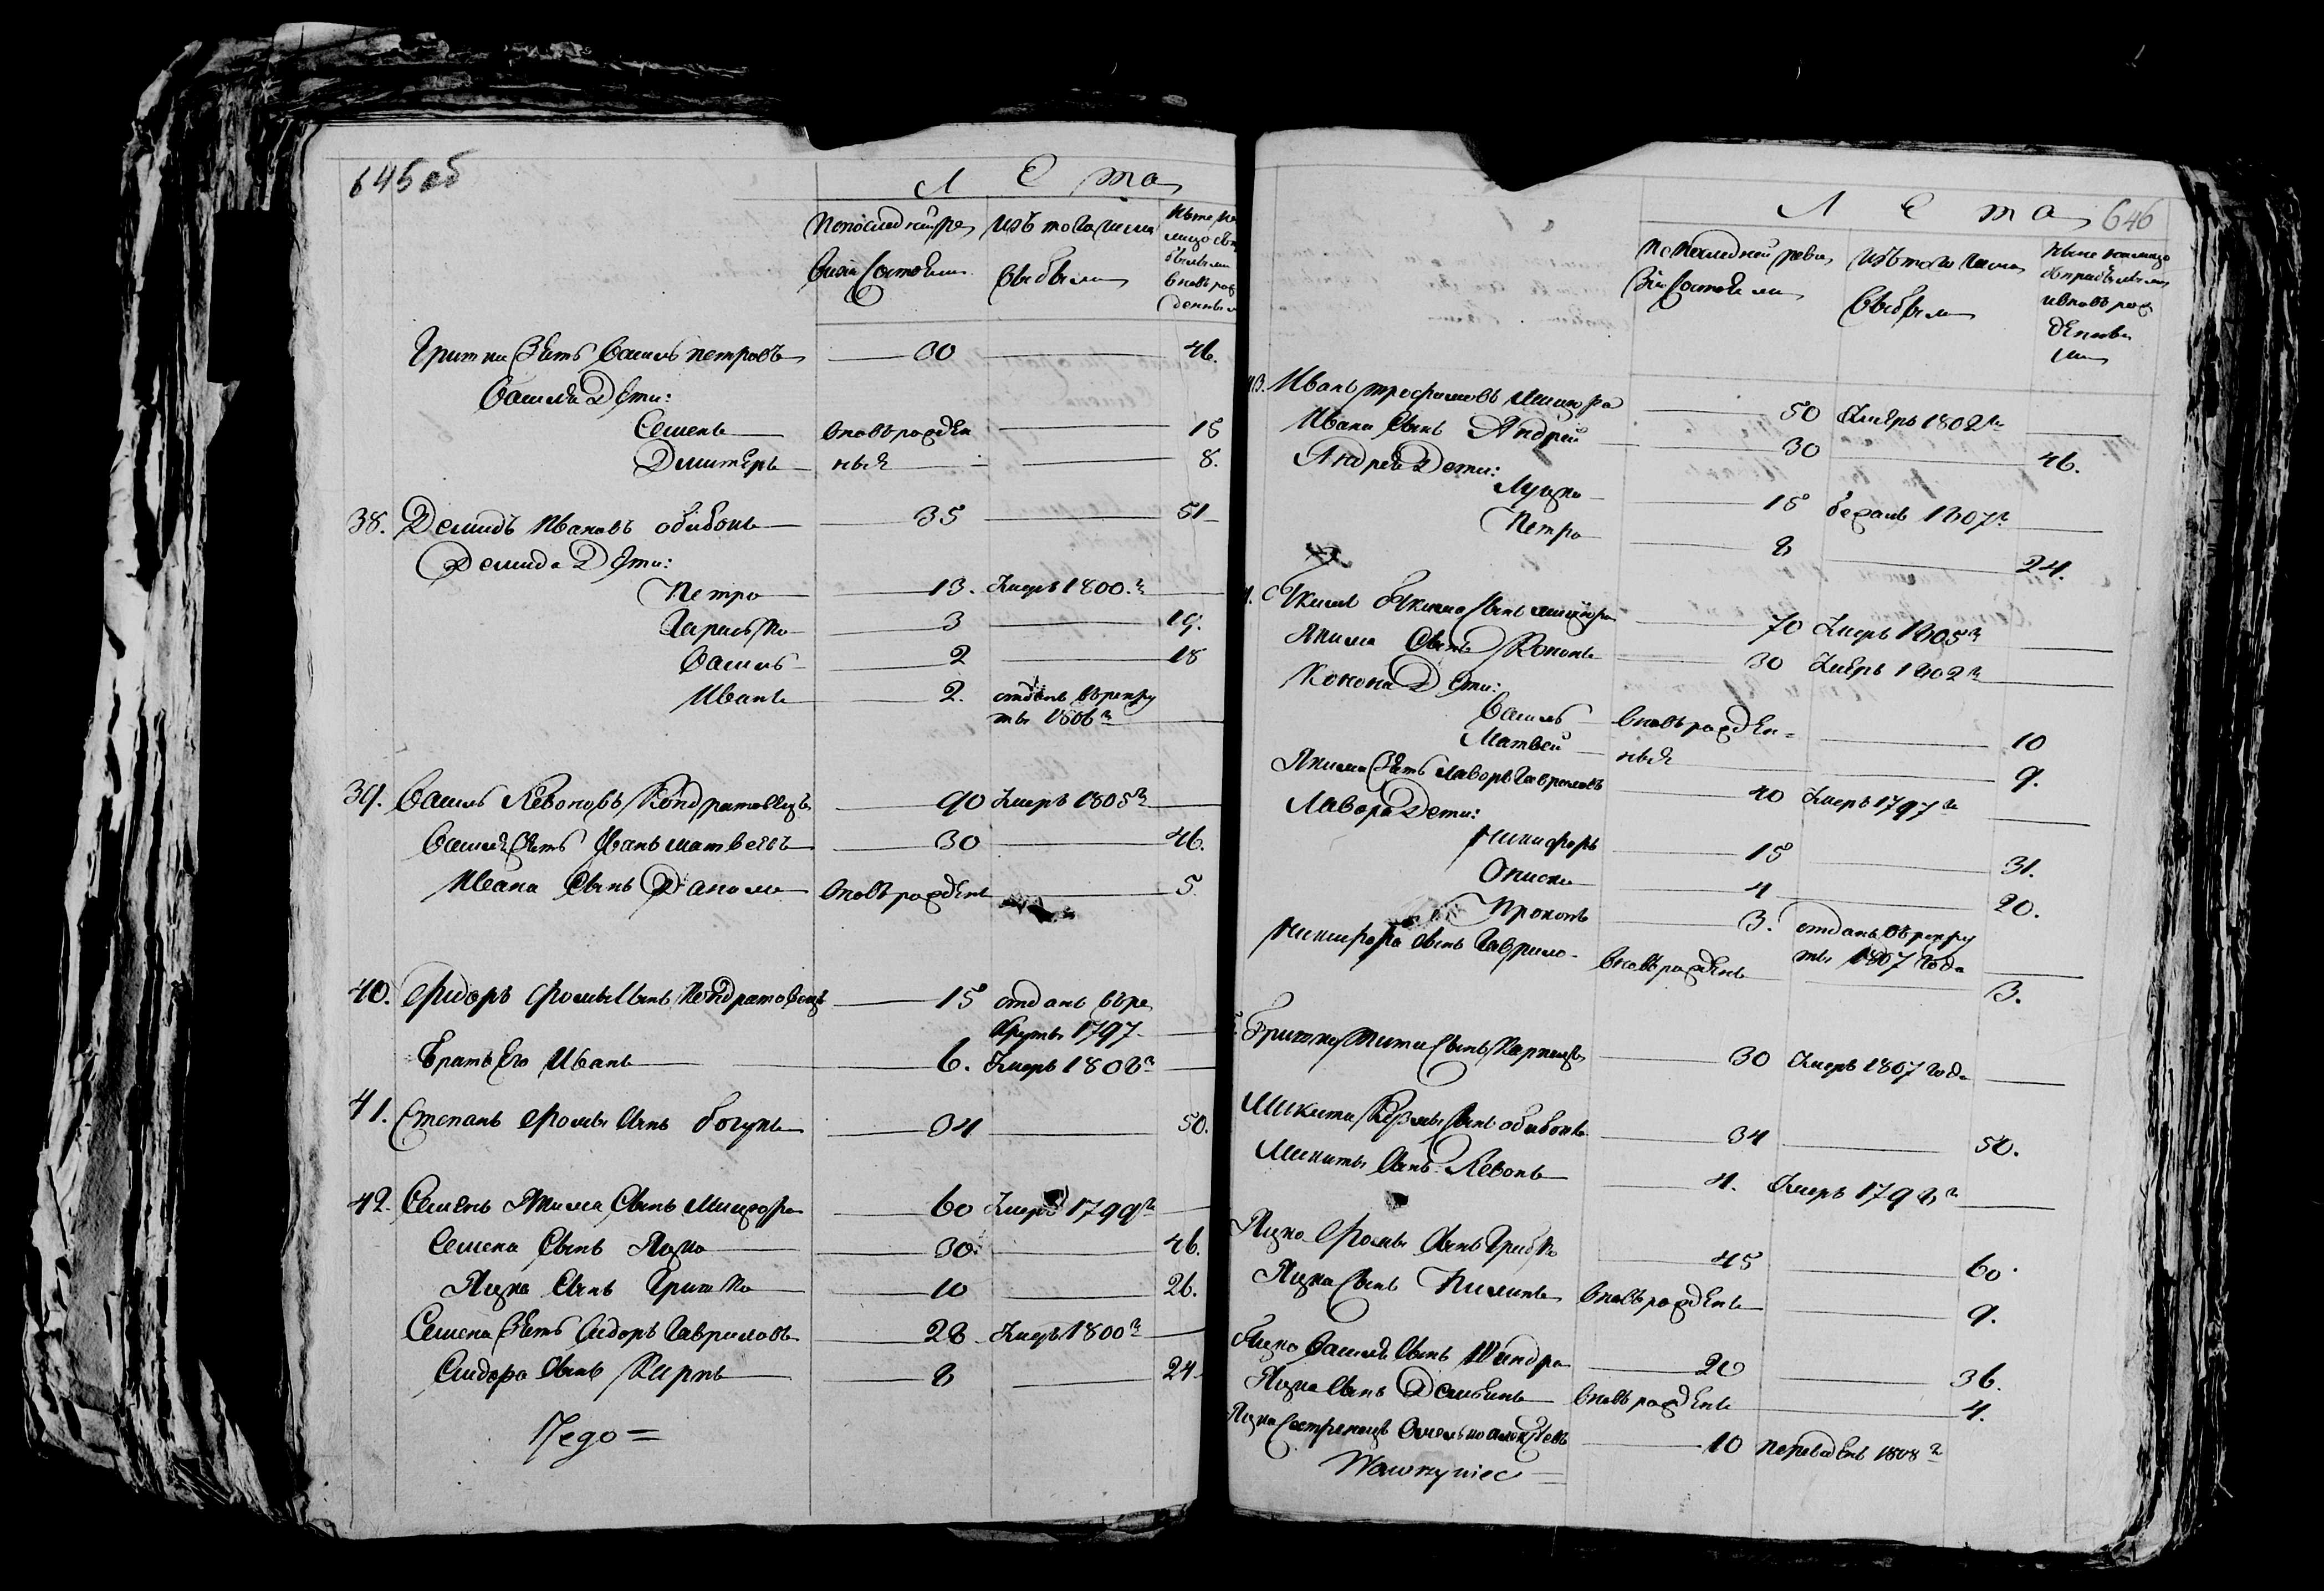 645 об
Лета
По последней ре
визіи состояли
Изъ того числа
выбыли
Ныне на
лицо съ
вновь рож
денным
Гришки Зять Василь петровъ 30 46.
Василя Дети:
Семенъ вновь рожден 15
Дмитеръ ныя 8.
38. Демидъ Ивановъ 35 51
Демида Дети:
Петро 13. Умеръ 1800. г
Гарасько 3 19.
Василь 2 18
Иванъ 2. отданъ въ рекру
ты 1806 г
39. Василь Левоновъ Кондратовецъ 90 Умеръ 1805 г
Василя Зять Иванъ матвеевъ 30 46.
Ивана Сынъ Данило вновь рожденъ 5.
40. Фидоръ Фомы Сынъ Кондратовецъ 15 отданъ въ ре
круты 1797
Братъ Его Иванъ 6. Умеръ 1808 г
41. Степанъ Фомы Сынъ Богунъ 34 50.
42. Семенъ Якима Сынъ Мицюра 60 Умеръ 1799 г
Семена Сынъ Яцко 30. 46.
Яцка Сынъ Гришко 10 26.
Семена Зять Сидоръ Гавриловъ 28 Умеръ 1800 г
Сидора Сынъ Кирикъ 8 24
Tego =
Лета 646
По последней реви
зіи состояли
Изъ того числа
выбыли
Ныне налицо
съ прибылыми
и вновь рож
денны
ми
43. Иванъ трофимовъ Мицюра 50 Умеръ 1802 г
Ивана Сынъ Андрей 30 46.
Андрея Дети:
Луцко 15 бежалъ 1807 г
Петро 8 24.
Якима Сынъ мицюра 70 Умеръ 1805 г
Якима Сынъ Кононъ 30 Умеръ 1802 г
Конона Дети:
Василь вновь рожден= 10
Матвей ныя 9.
Якима Зять Лаворъ Гавриловъ 40 Умеръ 1797 г
Лавора Дети:
Никифоръ 15 31.
Описко 4 20.
Прокопъ 3. отданъ въ рекру
ты 1807 года
Никифора сынъ Гаврило вновь рожденъ 3.
Гришко Микити Сынъ Карпецъ 30 Умеръ 1807 года
Микита Кузмы Сынъ 34 50.
Микиты Сынъ Левонъ 4. Умеръ 1798 г
Яцко Фомы Сынъ Грибко 45 60
Яцка Сынъ Пилипъ вновь рожденъ 9.
Яцко Василя Сынъ Шиндра 20 36.
Яцка Сынъ Демьянъ вновь рожденъ 4.
Яцка Сестренецъ Омелько алексеевъ 10 переведенъ 1808 г
Wawrzyniec =